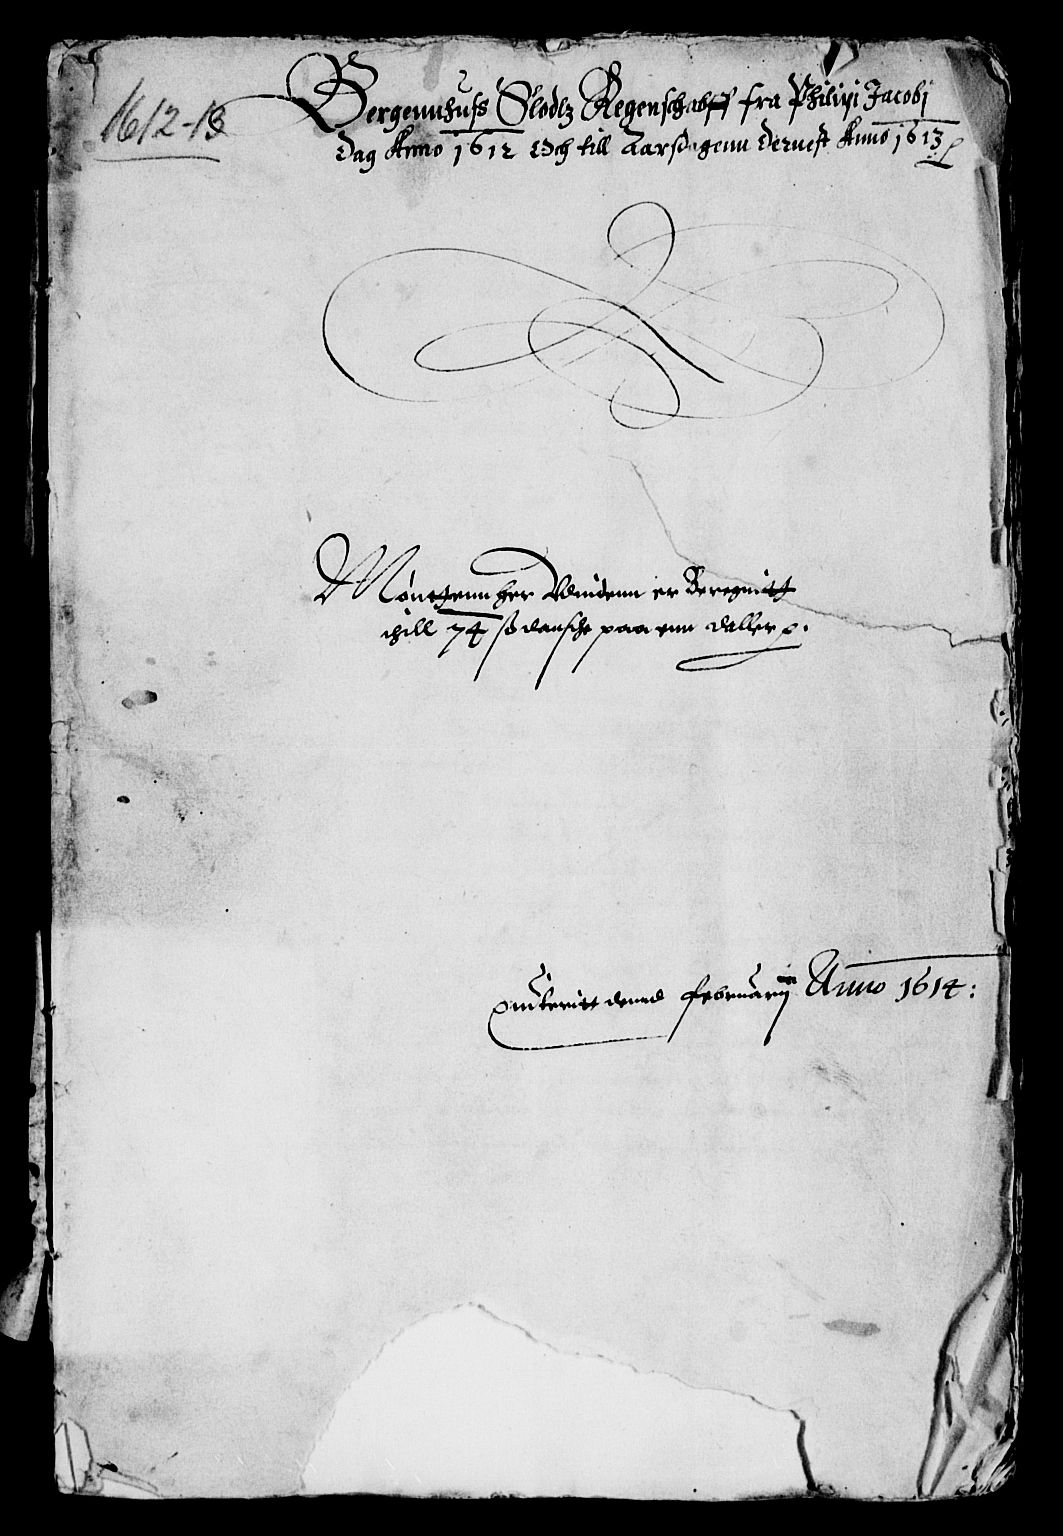 1612-13
Bergennhuss Slodtz Regenschabff fra Philipi Jacobi
Dag Anno 1612 Och till Aarsdagenn dernest Anno 1613
Mönttenn her Vdinden er Beregnitt
thill 74 ß dansche paa enn daller
Quiterit dend februarij Anno 1614: